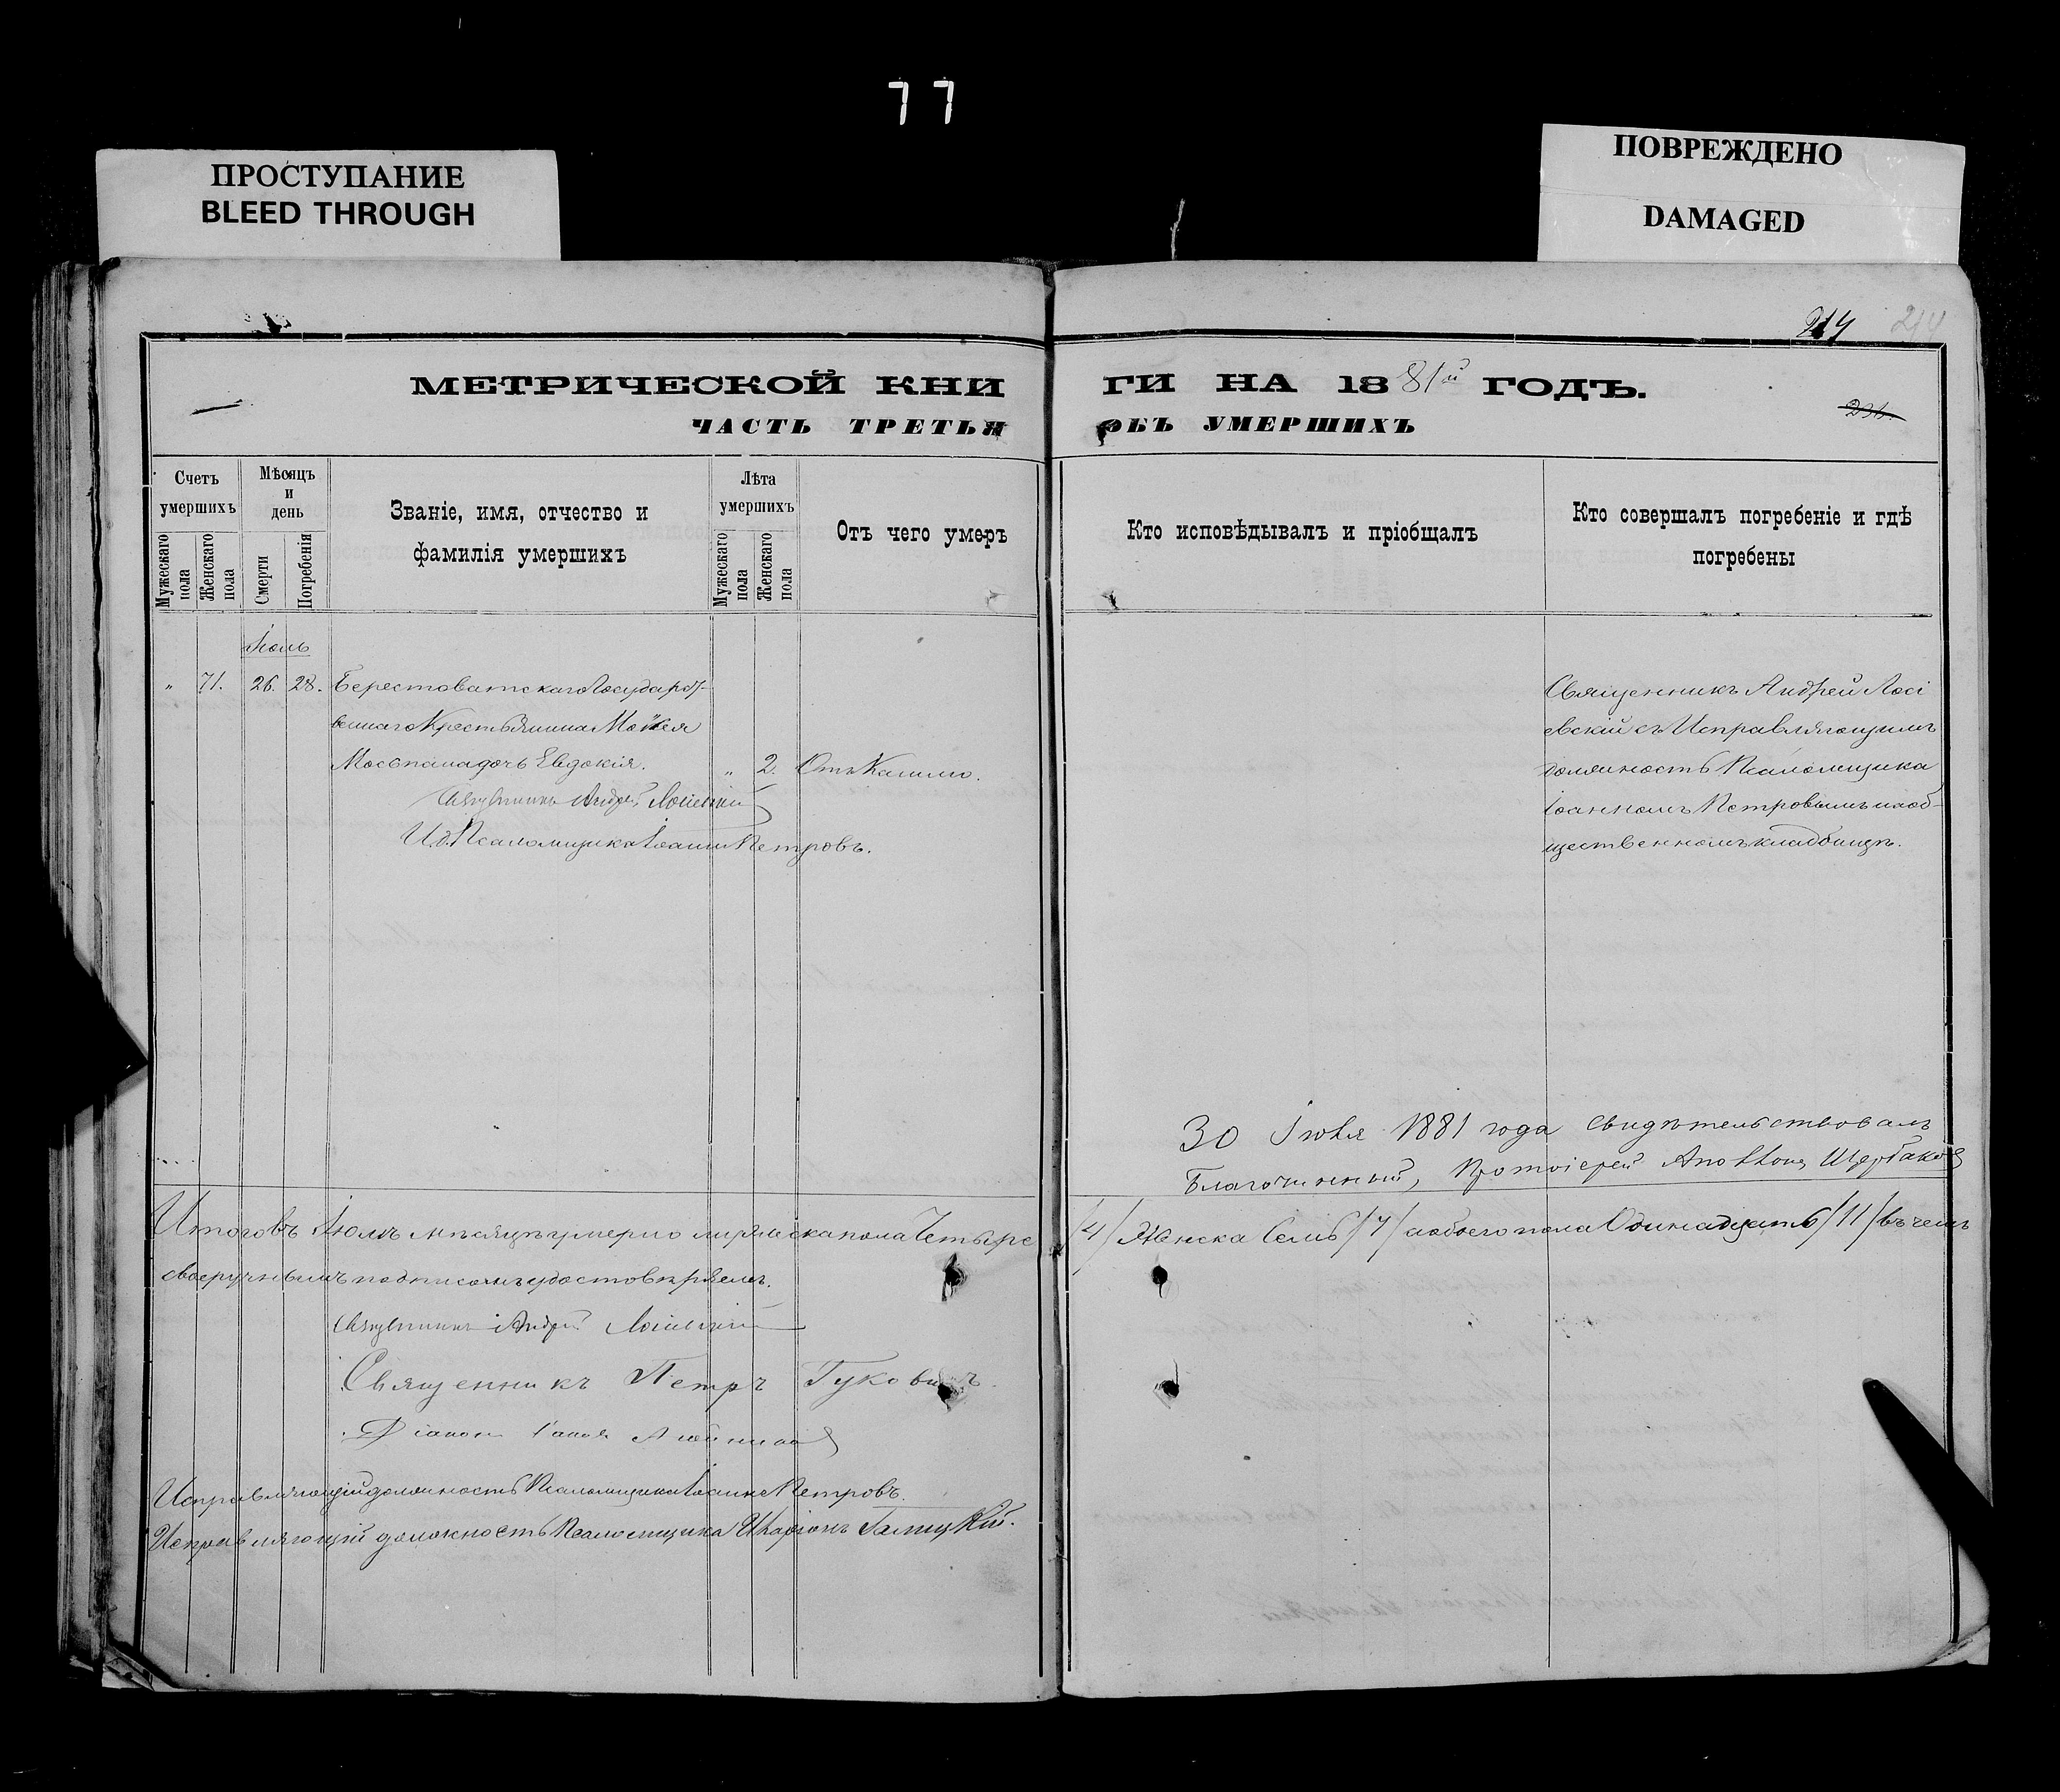 77
ПРОСТУПАНИЕ
BLEED THROUGH
ПОВРЕЖДЕНО
DAMAGED
214 214
МЕТРИЧЕСКОЙ КНИ ГИ НА 1881й ГОДЪ.
ЧАСТЬ ТРЕТЬЯ ОБЪ УМЕРШИХЪ
Счетъ умершихъ
Мужескаго пола
Женскаго пола
Мѣсяцъ и день
Смерти
Погребенія
Званіе, имя, отчество и
фамилія умершихъ
Лѣта умершихъ
Мужескаго пола
Женскаго пола
Отъ чего умеръ
Кто исповѣдывалъ и пріобщалъ
Кто совершалъ погребеніе и гдѣ
погребены
„ 71. 26. 28. Берестоватскаго Государст-
веннаго Крестьянина
дочь Евдокія. „ 2. Отъ Кашлю.
Священникъ Андрей
И. д. Псаломщика Іоаннъ Петровъ.
Священникъ Андрей
евскій съ Исправляющимъ
должность Псаломщика
Іоанномъ Петровымъ на об-
щественномъ кладбищѣ.
30 1881 года свидѣтельствовалъ
Благочинный, Протоіерей
Итого въ мѣсяцѣ умерло мужеска пола Четыре /4/ Женска Семь /7/ а обоего пола Одинадцать /11/ въ чемъ
своеручнымъ подписомъ удостовѣряемъ.
Священникъ Андрей
Священникъ Петръ
Діаконъ
Исправляющій должность Псаломщика Іоаннъ Петровъ.
Исправляющій должность Псаломщика Иларіонъ Галицкій.